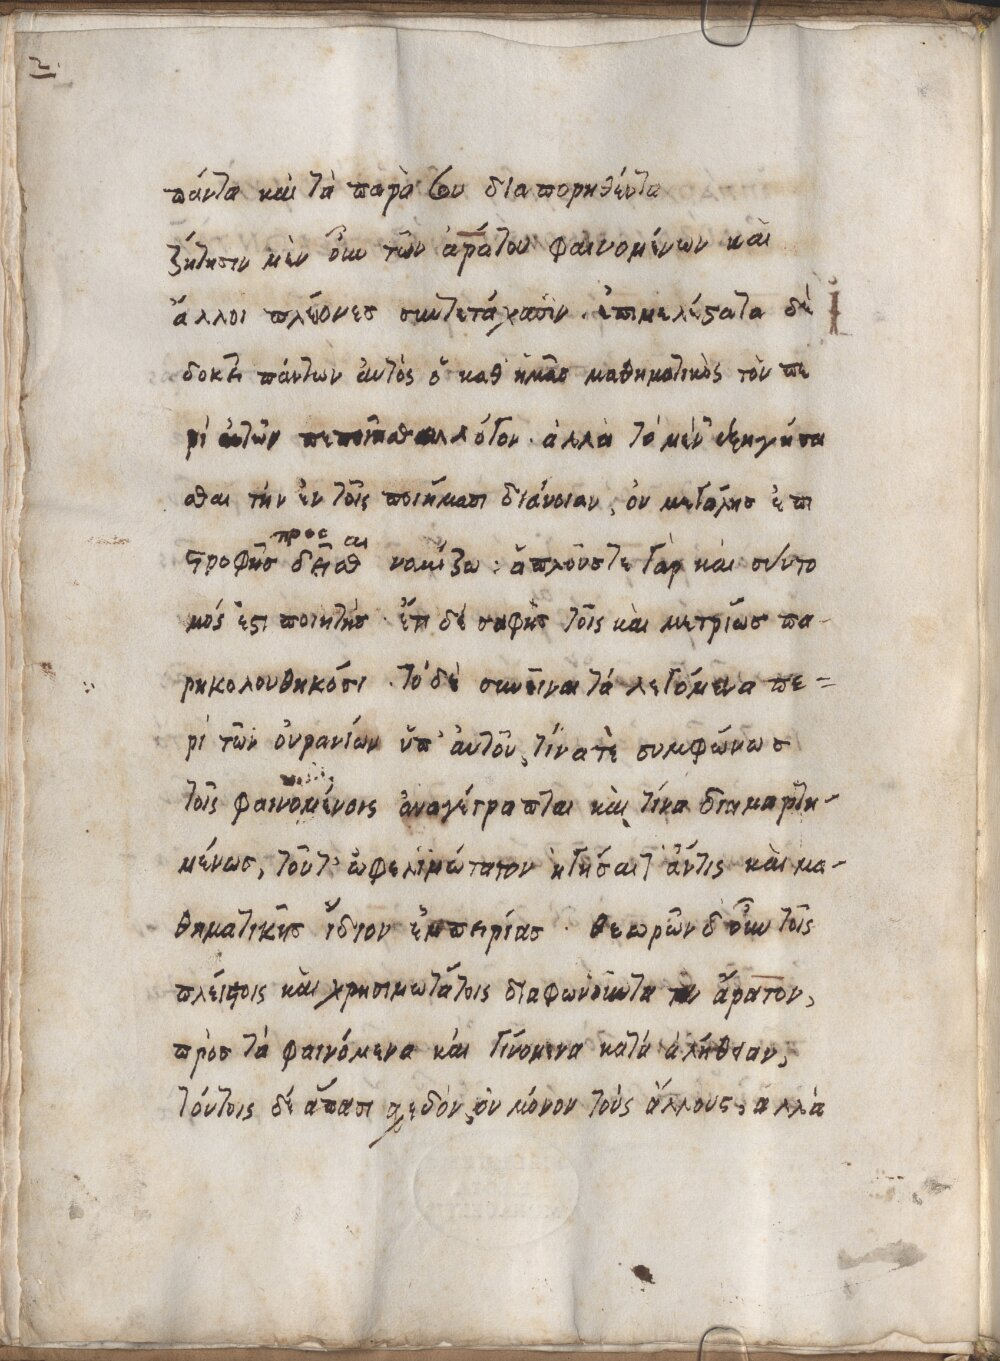 2.
πάντα καὶ τὰ παρὰ σου διαπορηθέντα
ζήτησιν μὲν οὖν τῶν ἀράτου φαινομένων καὶ
ἄλλοι πλείονες συντετάχασιν. ἐπιμελέστατα δὲ
δοκεῖ πάντων ἀυτὸς ὁ καθ ἡμᾶς μαθηματικὸς τὸν πε
ρὶ λόγον. ἀλλὰ τὸ μὲν ἐξηγήσα
σθαι τὴν ἐν τοῖς ποιήμασι διάνοιαν, ὀυ μεγάλης ἐπι
προσ αι
στροφῆς δεῖσθ νομίζω. ἁπλοῦς τε γὰρ καὶ σύντο
μός ἐστι ποιητὴς. ἔτι δὲ σαφὴς τοῖς καὶ μετρίως πα-
ρηκολουθηκόσι. τὸ δὲ συνεῖναι τὰ λεγόμενα πε=
ρὶ τῶν ὀυρανίων ὑπ' ἀυτοῦ, τίνα τὲ συμφώνως
τοῖς φαινομένοις ἀναγέγραπται καὶ τίνα διημαρτη-
μένως, τοῦτ' ὠφελιμώτατον ἡγήσαιτ' ἄν τις καὶ μα-
θηματικῆς ἴδιον ἐμπειρίας. θεωρῶν δ' οὖν τοῖς
πλείστοις καὶ χρησιμωτάτοις διαφωνοῦντα τὸν ἄρατον,
πρὸς τὰ φαινόμενα καὶ γινόμενα κατὰ ἀλήθειαν,
τούτοις δὲ ἅπασι σχεδὸν, ὀυ μόνον τοὺς ἄλλους, ἀλλὰ